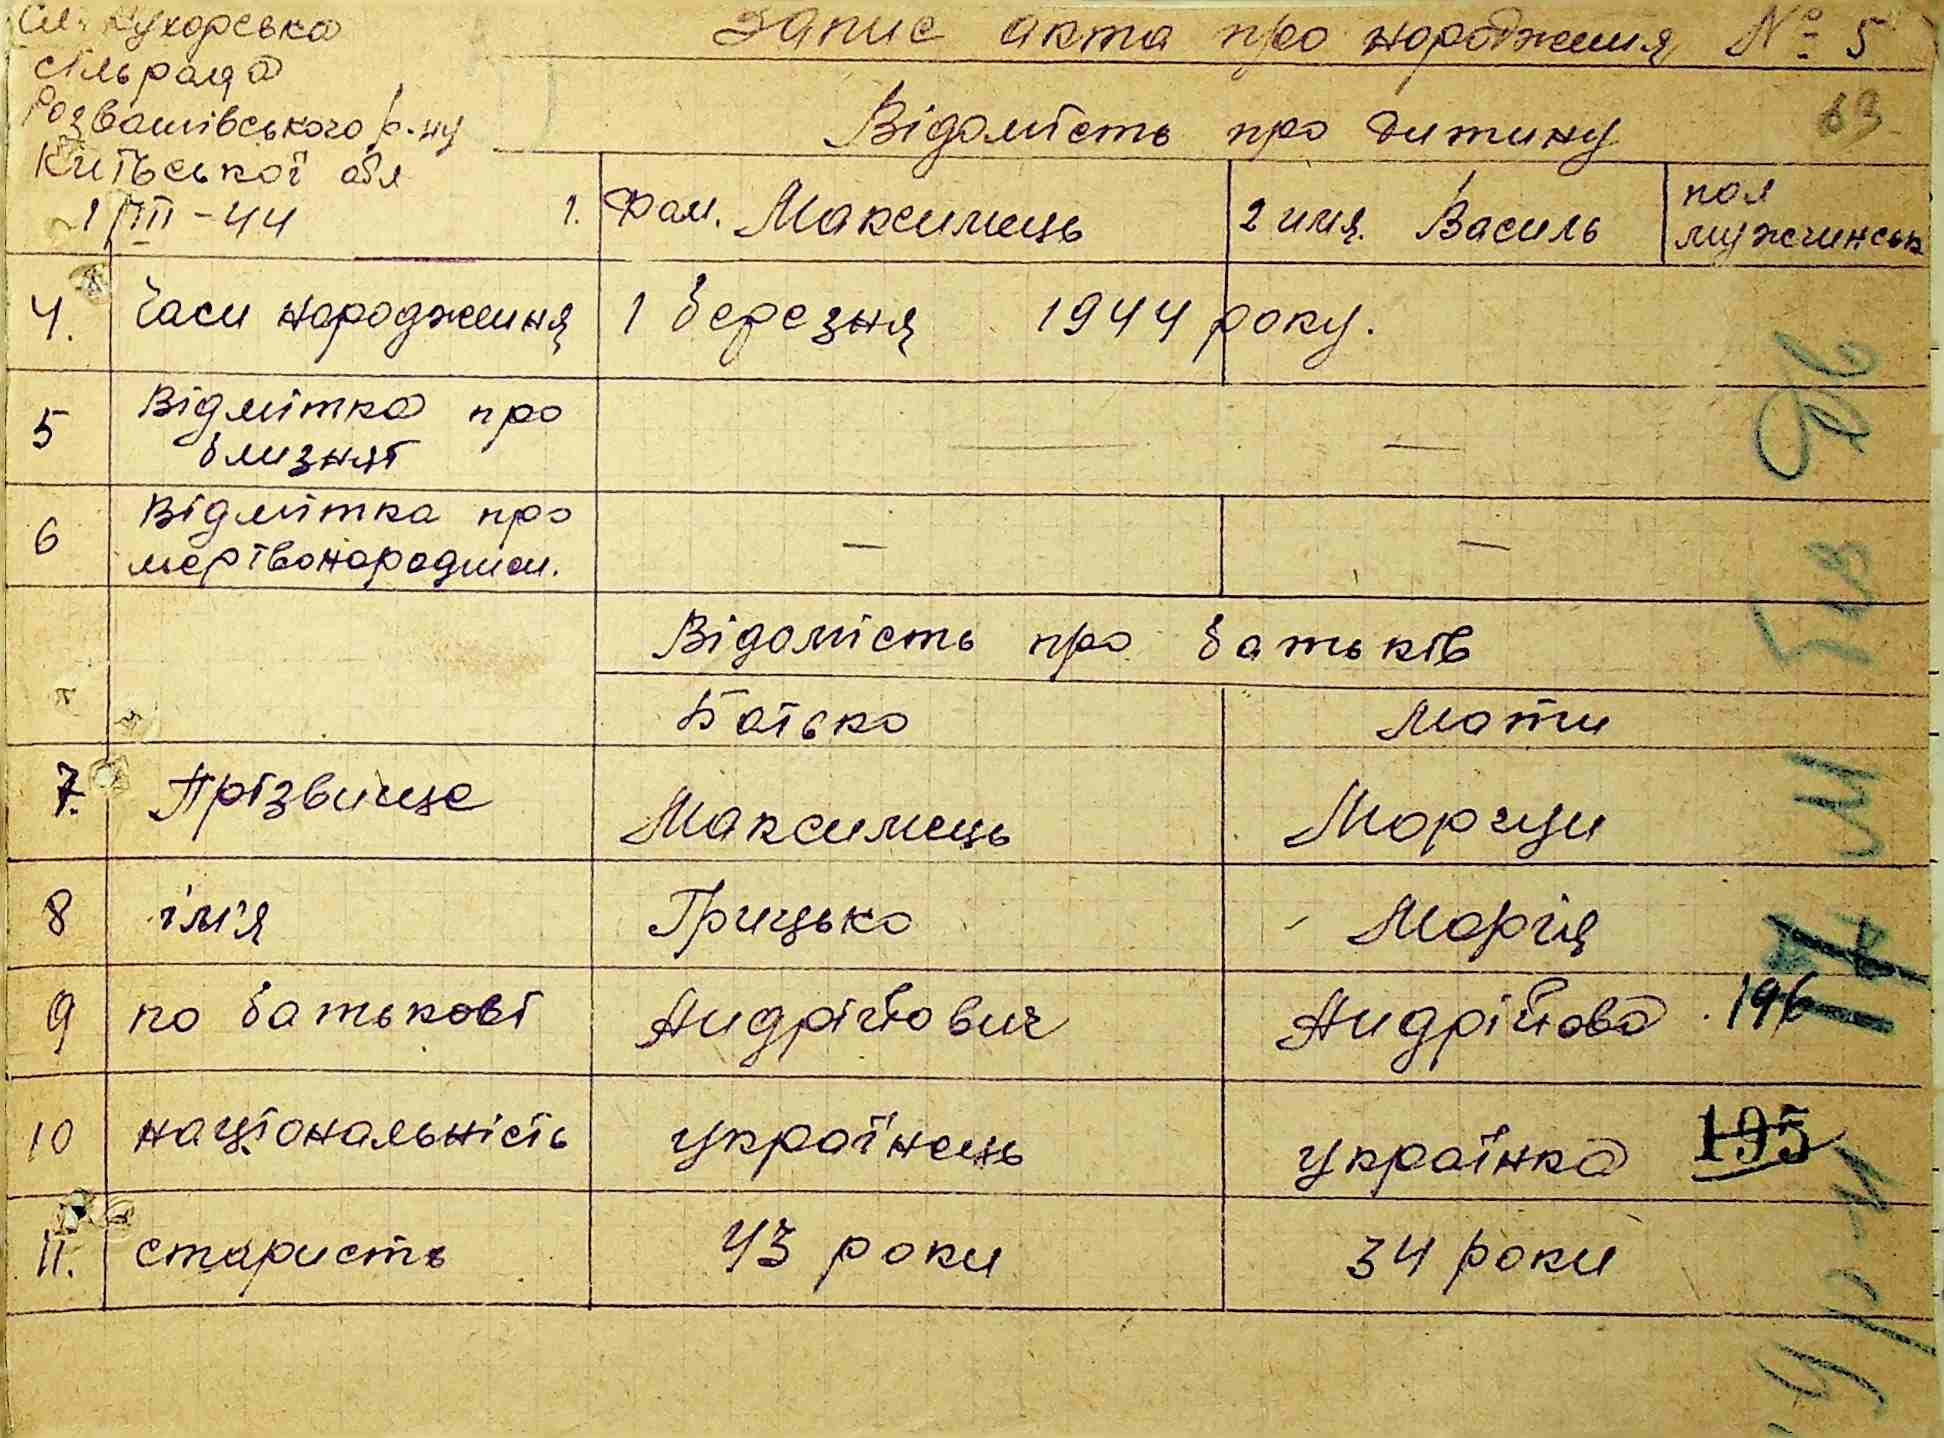 Кухорська
сільрада
Розважівського р-ну
Київської обл
1/III-44
Запис акта про народження № 5
63
Відомість про дитину
1. Фам. Максимець
2 имя. Василь
пол
мужчинськ
4. Часи народження 1 березня 1944 року.
5 Відмітка про
близнят — —
6 Відмітка про
мертвонароджен. — —
Відомість про батьків
Батько Мати
7. Прізвище Максимець Моргун
8 ім'я Грицько Марія
9 по батькові Андрійович Андрійова 196
10 національність українець українка 195
11. старисть 43 роки 34 роки